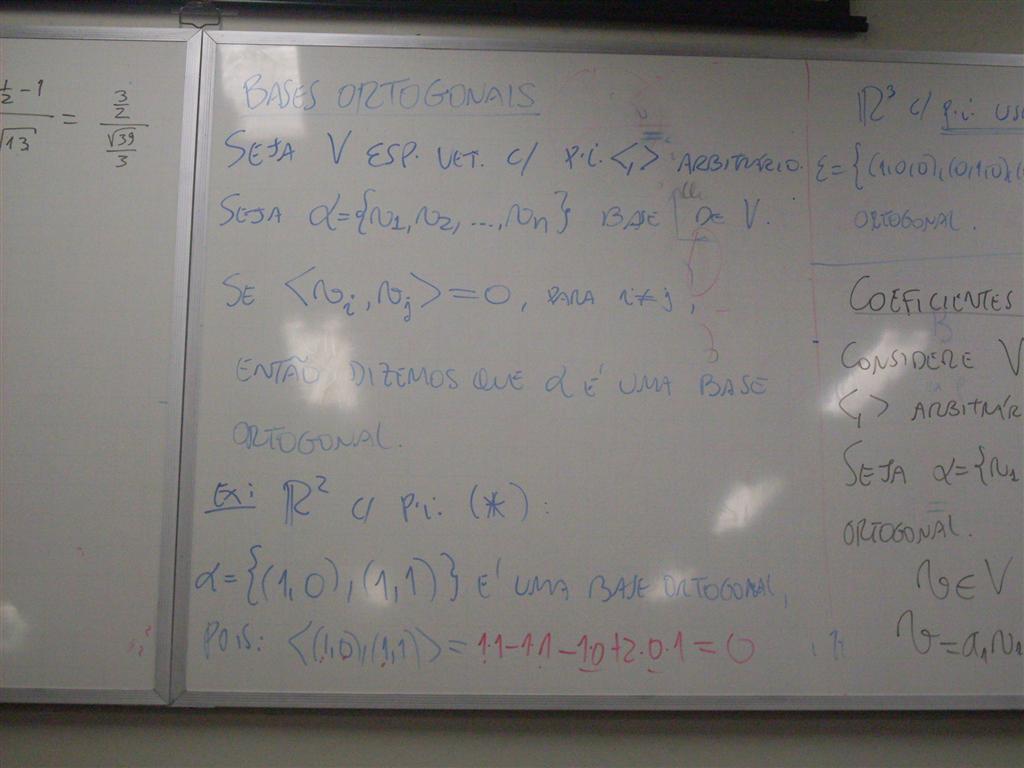 1/2 - 1 / √13 = 3/2 / √39/3
BASES ORTOGONAIS
SEJA V ESP. VET. C/ P.I. <,> ARBITRÁRIO.
SEJA α={v1,v2,...,vn} BASE DE V.
SE <vi,vj>=0, PARA i≠j,
ENTÃO DIZEMOS QUE α É UMA BASE
ORTOGONAL.
EX: ℝ² C/ P.I. (*):
α={(1,0),(1,1)} É UMA BASE ORTOGONAL,
POIS: <(1,0),(1,1)> = 1.1-1.1-1.0+2.0.1=0
ℝ³ C/ P.I.
ε={(1,0,0),(0,1,0),(
ORTOGONAL.
COEFICIENTES
CONSIDERE V
<,>
SEJA α={v1
ORTOGONAL.
v∈V
v=a1v1